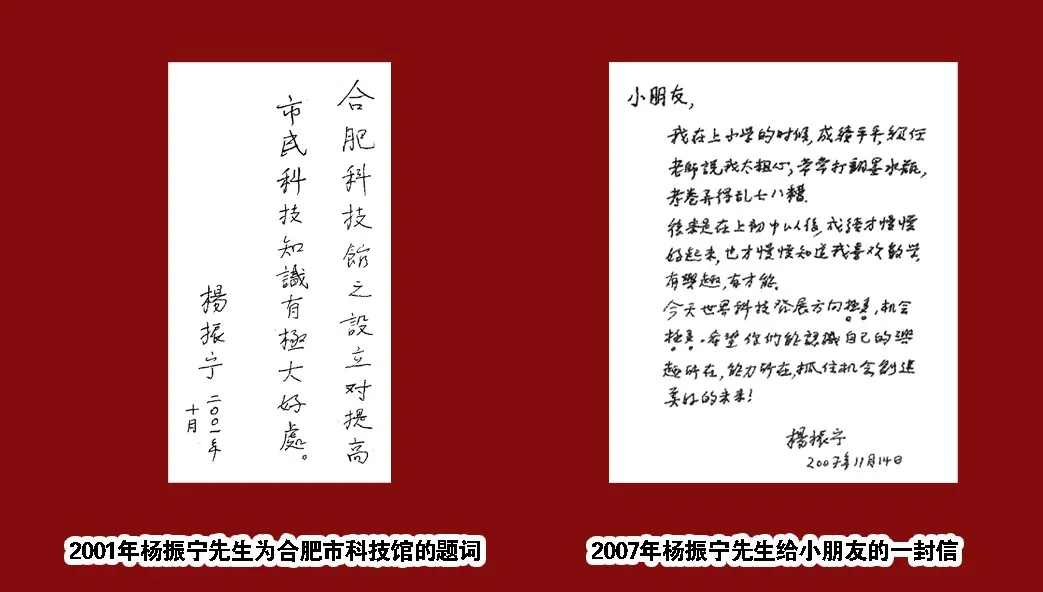 合肥科技館之設立对提高
市民科技知識有極大好處。
楊振宁
二〇〇一年
十月
小朋友,
我在上小学的时候,成績平平,級任
老師説我太粗心,常常打翻墨水瓶,
考卷弄得乱七八糟.
後来是在上初中以後,成績才慢慢
好起来,也才慢慢知道我喜欢数学,
有興趣,有才能.
今天世界科技發展方向极多,机会
极多.希望你们能認識自己的興
趣所在,能力所在,抓住机会創造
美好的未来!
楊振宁
2007年11月14日
2001年杨振宁先生为合肥市科技馆的题词
2007年杨振宁先生给小朋友的一封信